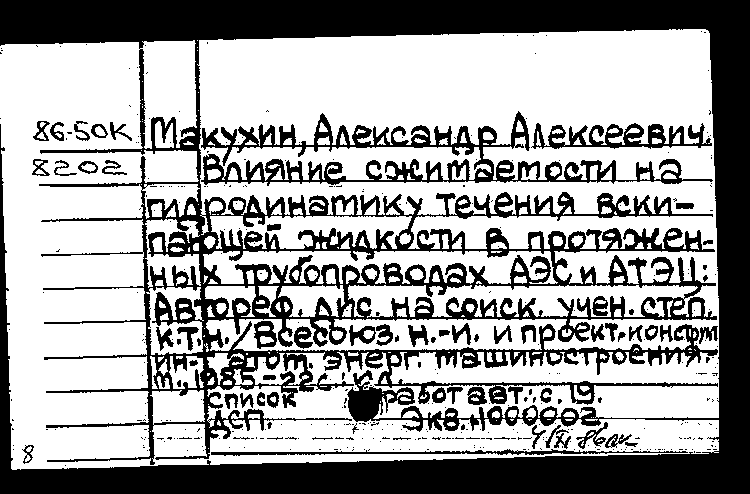 86-50К Макухин, Александр Алексеевич.
8202 Влияние сжимаемости на
гидродинамику течения вски-
пающей жидкости в протяжен-
ных трубопроводах АЭС и АТЭЦ:
Автореф. дис. на соиск. учен. степ.
к.т.н. / Всесоюз. н.-и. и проект.-констр
ин-т атом. энерг. машиностроения.-
М., 1985.-22с.: ил.
Список работ авт.: с. 19.
ДСП. Экз. 1000002
8